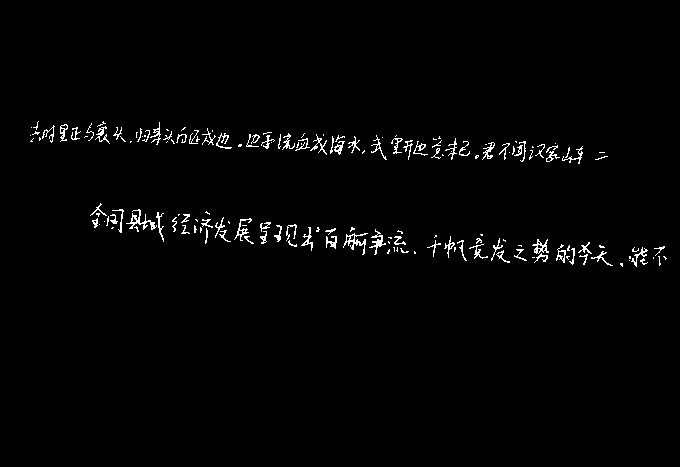 去时里正与裹头,归来头白还戍边。边亭流血成海水,武皇开边意未已。君不闻汉家山东二
全国县域经济发展呈现出百舸争流、千帆竞发之势的今天,能不